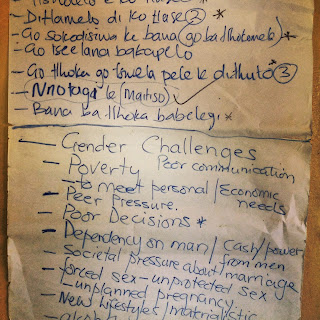 - Ditlamelo di ko tlase ② *
- Go sokodisiwa ke bana (go ba tlhokomela) *
- Go tseelana bakapelo
- Go tlhoka go tswela pele ka dithuto ③
- Nnotagi le (Maitiso)
- Bana ba tlhoka babelegi *
- Gender Challenges
- Poverty Poor communication
- to meet personal / Economic needs
- Peer Pressure.
- Poor Decisions *
- Dependency on man / cash / power from men
- Societal pressure about marriage
- forced sex - unprotected sex
- Unplanned pregnancy
- New lifestyles / materialistic